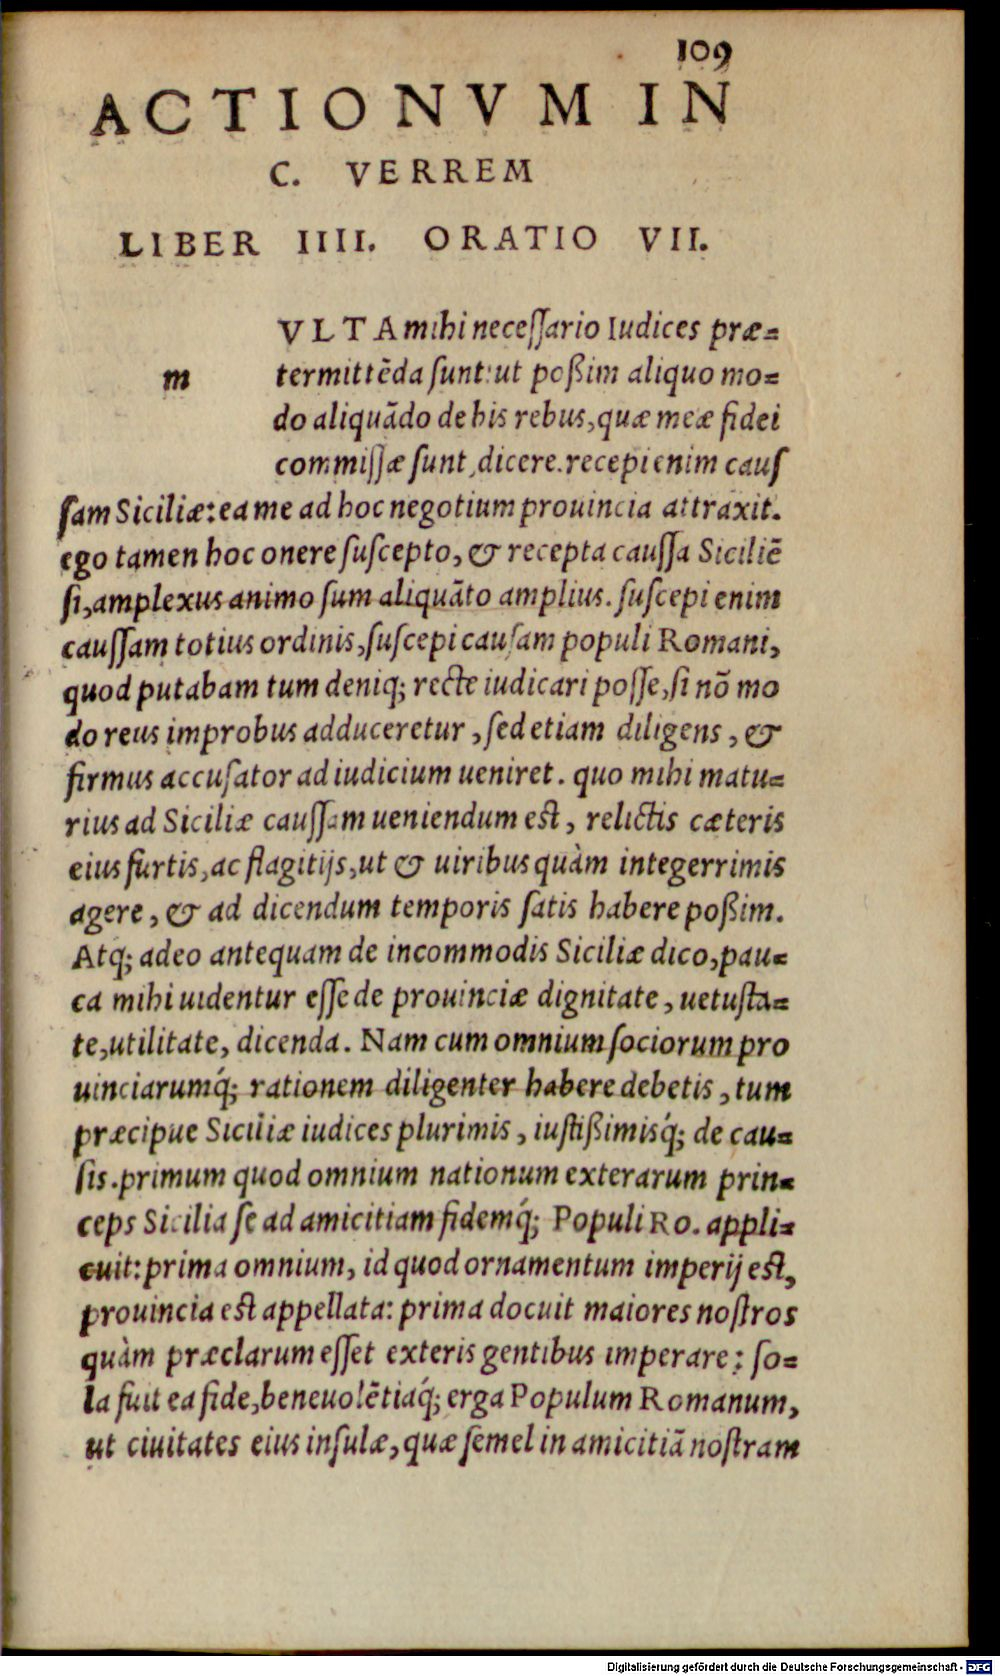 109
ACTIONVM IN
C. VERREM
LIBER IIII. ORATIO VII.
VLTA mihi neceſſario Iudices præ-
m termittēda ſunt: ut poßim aliquo mo-
do aliquādo de his rebus, quæ meæ fidei
commiſſæ ſunt, dicere. recepi enim cauſ
ſam Siciliæ: ea me ad hoc negotium prouincia attraxit.
ego tamen hoc onere ſuſcepto, & recepta cauſſa Siciliē
ſi, amplexus animo ſum aliquāto amplius. ſuſcepi enim
cauſſam totius ordinis, ſuſcepi cauſam populi Romani,
quod putabam tum deniq; recte iudicari poſſe, ſi nō mo
do reus improbus adduceretur, ſed etiam diligens, &
firmus accuſator ad iudicium ueniret. quo mihi matu-
rius ad Siciliæ cauſſam ueniendum eſt, relictis cæteris
eius furtis, ac flagitijs, ut & uiribus quàm integerrimis
agere, & ad dicendum temporis ſatis habere poßim.
Atq; adeo antequam de incommodis Siciliæ dico, pau-
ca mihi uidentur eſſe de prouinciæ dignitate, uetuſta-
te, utilitate, dicenda. Nam cum omnium ſociorum pro
uinciarumq́; rationem diligenter habere debetis, tum
præcipue Siciliæ iudices plurimis, iuſtißimisq́; de cau-
ſis. primum quod omnium nationum exterarum prin-
ceps Sicilia ſe ad amicitiam fidemq́; Populi Ro. appli-
cuit: prima omnium, id quod ornamentum imperij eſt,
prouincia eſt appellata: prima docuit maiores noſtros
quàm præclarum eſſet exteris gentibus imperare: ſo-
la fuit ea fide, beneuolētiaq́; erga Populum Romanum,
ut ciuitates eius inſulæ, quæ ſemel in amicitiā noſtram
Digitalisierung gefördert durch die Deutsche Forschungsgemeinschaft - DFG